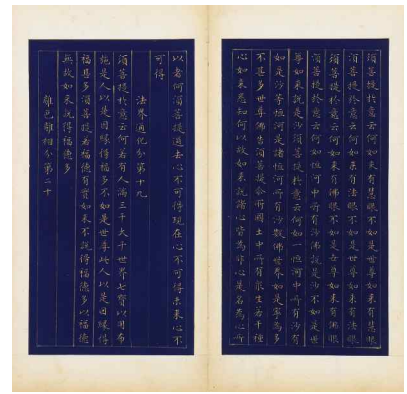 須菩提於意云何如來有慧眼不如是世尊如來有慧眼
須菩提於意云何如來有法眼不如是世尊如來有法眼
須菩提於意云何如來有佛眼不如是世尊如來有佛眼
須菩提於意云何如恒河中所有沙佛說是沙不如是世
尊如來說是沙須菩提於意云何如一恒河中所有沙有
如是沙等恒河是諸恒河所有沙數佛世界如是寧為多
不甚多世尊佛告須菩提爾所國土中所有眾生若干種
心如來悉知何以故如來說諸心皆為非心是名為心所
以者何須菩提過去心不可得現在心不可得未來心不
可得
法界通化分第十九
須菩提於意云何若有人滿三千大千世界七寶以用布
施是人以是因緣得福多不如是世尊此人以是因緣得
福甚多須菩提若福德有實如來不說得福德多以福德
無故如來說得福德多
離色離相分第二十